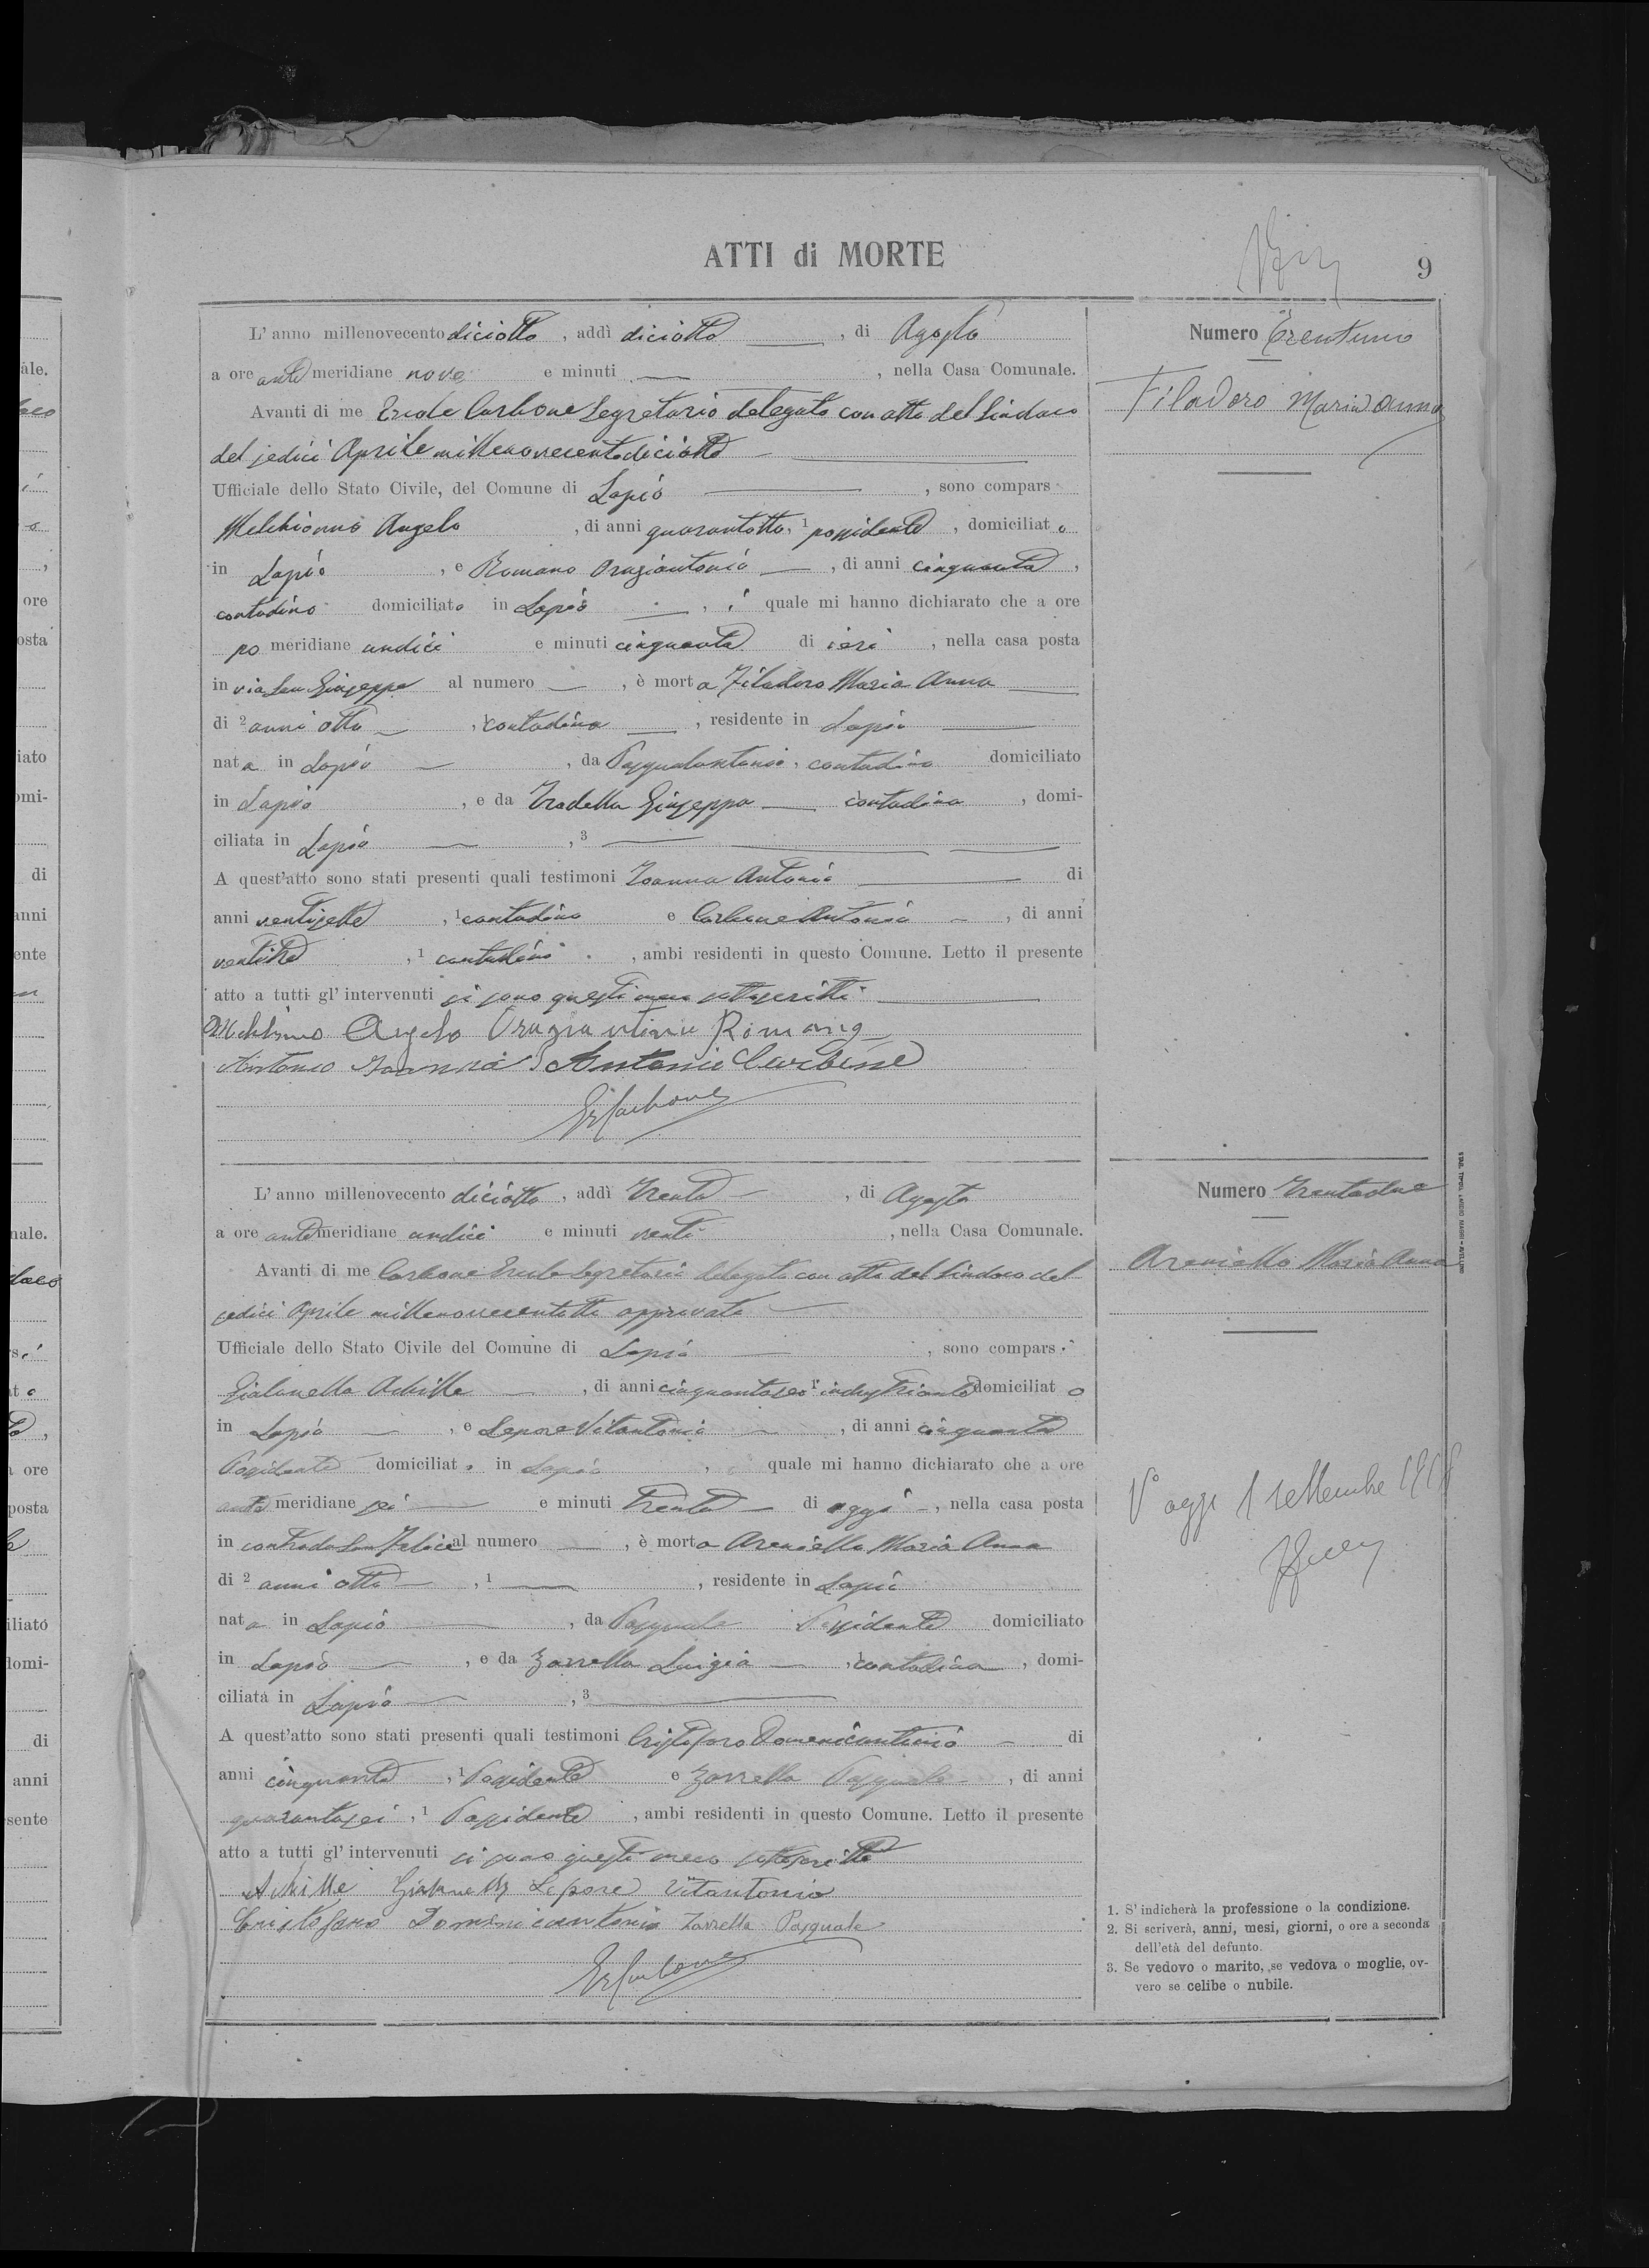 ATTI di MORTE
9
L'anno millenovecento diciotto, addì diciotto, di Agosto
a ore antimeridiane nove e minuti , nella Casa Comunale.
Avanti di me Ercole Carbone Segretario delegato con atto del Sindaco
del sedici Aprile millenovecentodiciotto
Ufficiale dello Stato Civile, del Comune di Lapio, sono compars
Melchionna Angelo, di anni quarantotto, 1 possidente, domiciliato
in Lapio, e Romano Oraziantonio, di anni cinquanta,
contadino domiciliato in Lapio, i quale mi hanno dichiarato che a ore
po meridiane undici e minuti cinquanta di ieri, nella casa posta
in via San Giuseppe al numero , è morta Filadoro Maria Anna
di 2 anni otto, contadina, residente in Lapio
nata in Lapio, da Pasqualantonio, contadino domiciliato
in Lapio, e da Giuseppa contadina, domi-
ciliata in Lapio, 3
A quest'atto sono stati presenti quali testimoni Ioanna Antonio di
anni ventisette, 1 contadino e Carbone Antonio, di anni
ventitre, 1 contadino, ambi residenti in questo Comune. Letto il presente
atto a tutti gl'intervenuti si sono questi meco sottoscritti
Angelo Romano
Antonio Ioanna Antonio Carbone
ErCarbone
Numero Trentuno
Filadoro Marianna
L'anno millenovecento diciotto, addì Trenta, di Agosto
a ore antimeridiane undici e minuti venti, nella Casa Comunale.
Avanti di me Carbone Ercole Segretario delegato con atto del Sindaco del
sedici Aprile approvato
Ufficiale dello Stato Civile del Comune di Lapio, sono compars i
Gialanella Achille, di anni cinquantasei 1 industriante domiciliato
in Lapio, e Lepore Vitantonio, di anni cinquanta
Possidente domiciliato in Lapio, quale mi hanno dichiarato che a ore
ante meridiane sei e minuti trenta di oggi, nella casa posta
in contrada San Felice al numero , è morta Areniello Maria Anna
di 2 anni otto, 1 , residente in Lapio
nata in Lapio, da Pasquale Possidente domiciliato
in Lapio, e da Zarrella Luigia, contadina, domi-
ciliata in Lapio, 3
A quest'atto sono stati presenti quali testimoni Cristofaro Domenicantonio di
anni cinquanta, 1 Possidente e Zarrella Pasquale, di anni
quarantasei, 1 Possidente, ambi residenti in questo Comune. Letto il presente
atto a tutti gl'intervenuti si sono questi meco sottoscritti
Achille Gialanella Lepore Vitantonio
Cristofaro Domenicantonio Zarrella Pasquale
ErCarbone
Numero Trentadue
Areniello Maria Anna
V° oggi 1 settembre 1918
1. S'indicherà la professione o la condizione.
2. Si scriverà, anni, mesi, giorni, o ore a seconda
dell'età del defunto.
3. Se vedovo o marito, se vedova o moglie, ov-
vero se celibe o nubile.